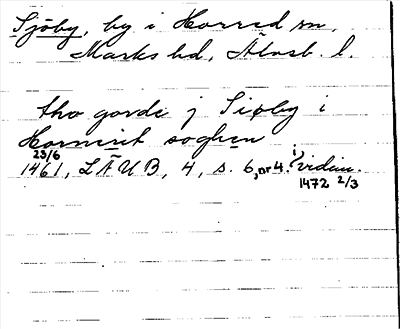 Sjöby, by i Horred sn,
Marks hd, Älvsb. l.
tho gorde j Siøby i
Horneret soghen
23/6
1461, LÄUB, 4, s. 6, nr 4. i vidim.
1472 2/3